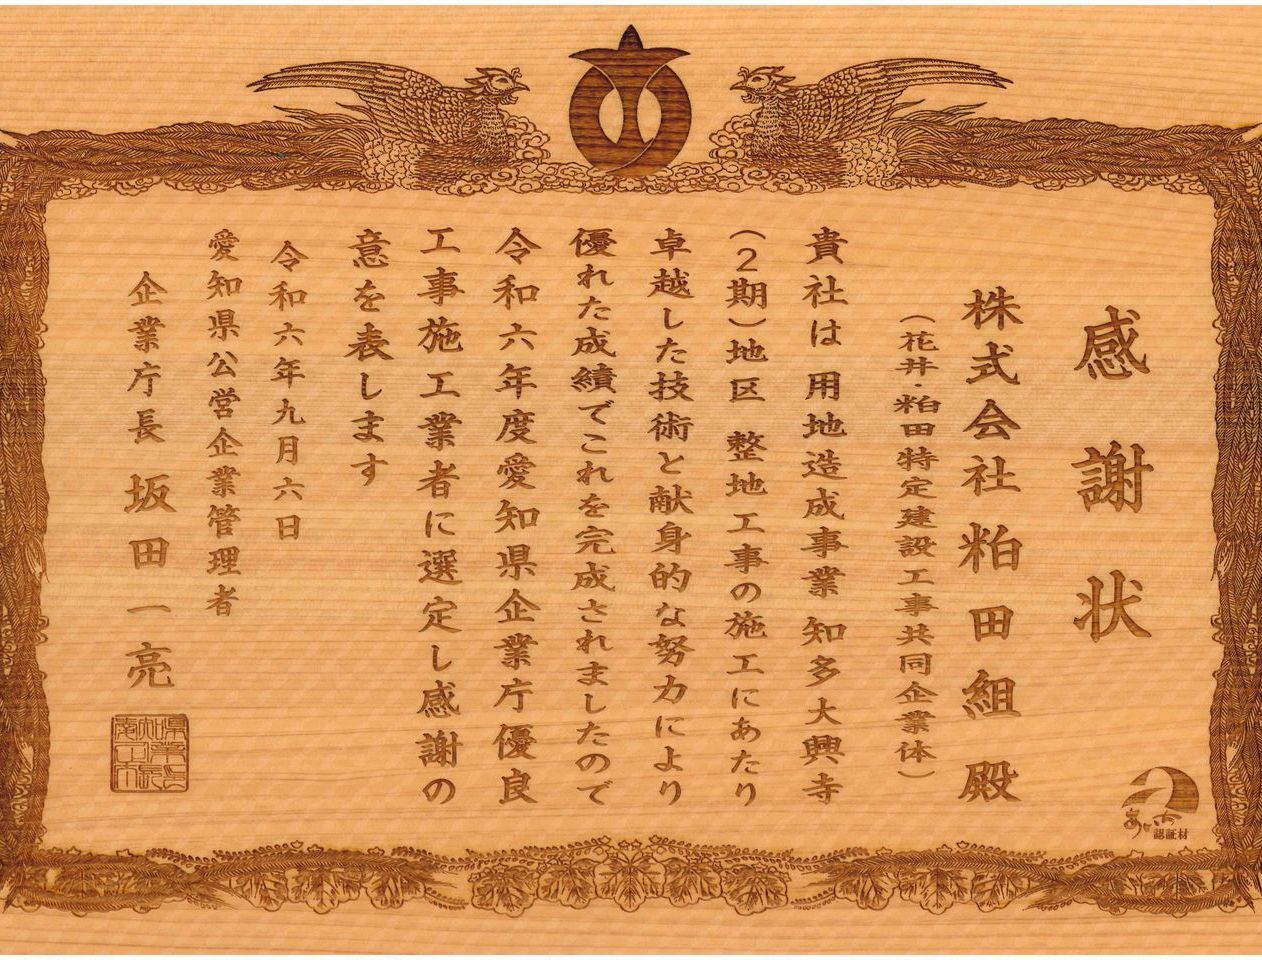 感謝状
株式会社粕田組殿
（花井・粕田特定建設工事共同企業体）
貴社は用地造成事業知多大興寺
（２期）地区 整地工事の施工にあたり
卓越した技術と献身的な努力により
優れた成績でこれを完成されましたので
令和六年度愛知県企業庁優良
工事施工業者に選定し感謝の
意を表します
令和六年九月六日
愛知県公営企業管理者
企業庁長 坂田一亮
あいち
認証材